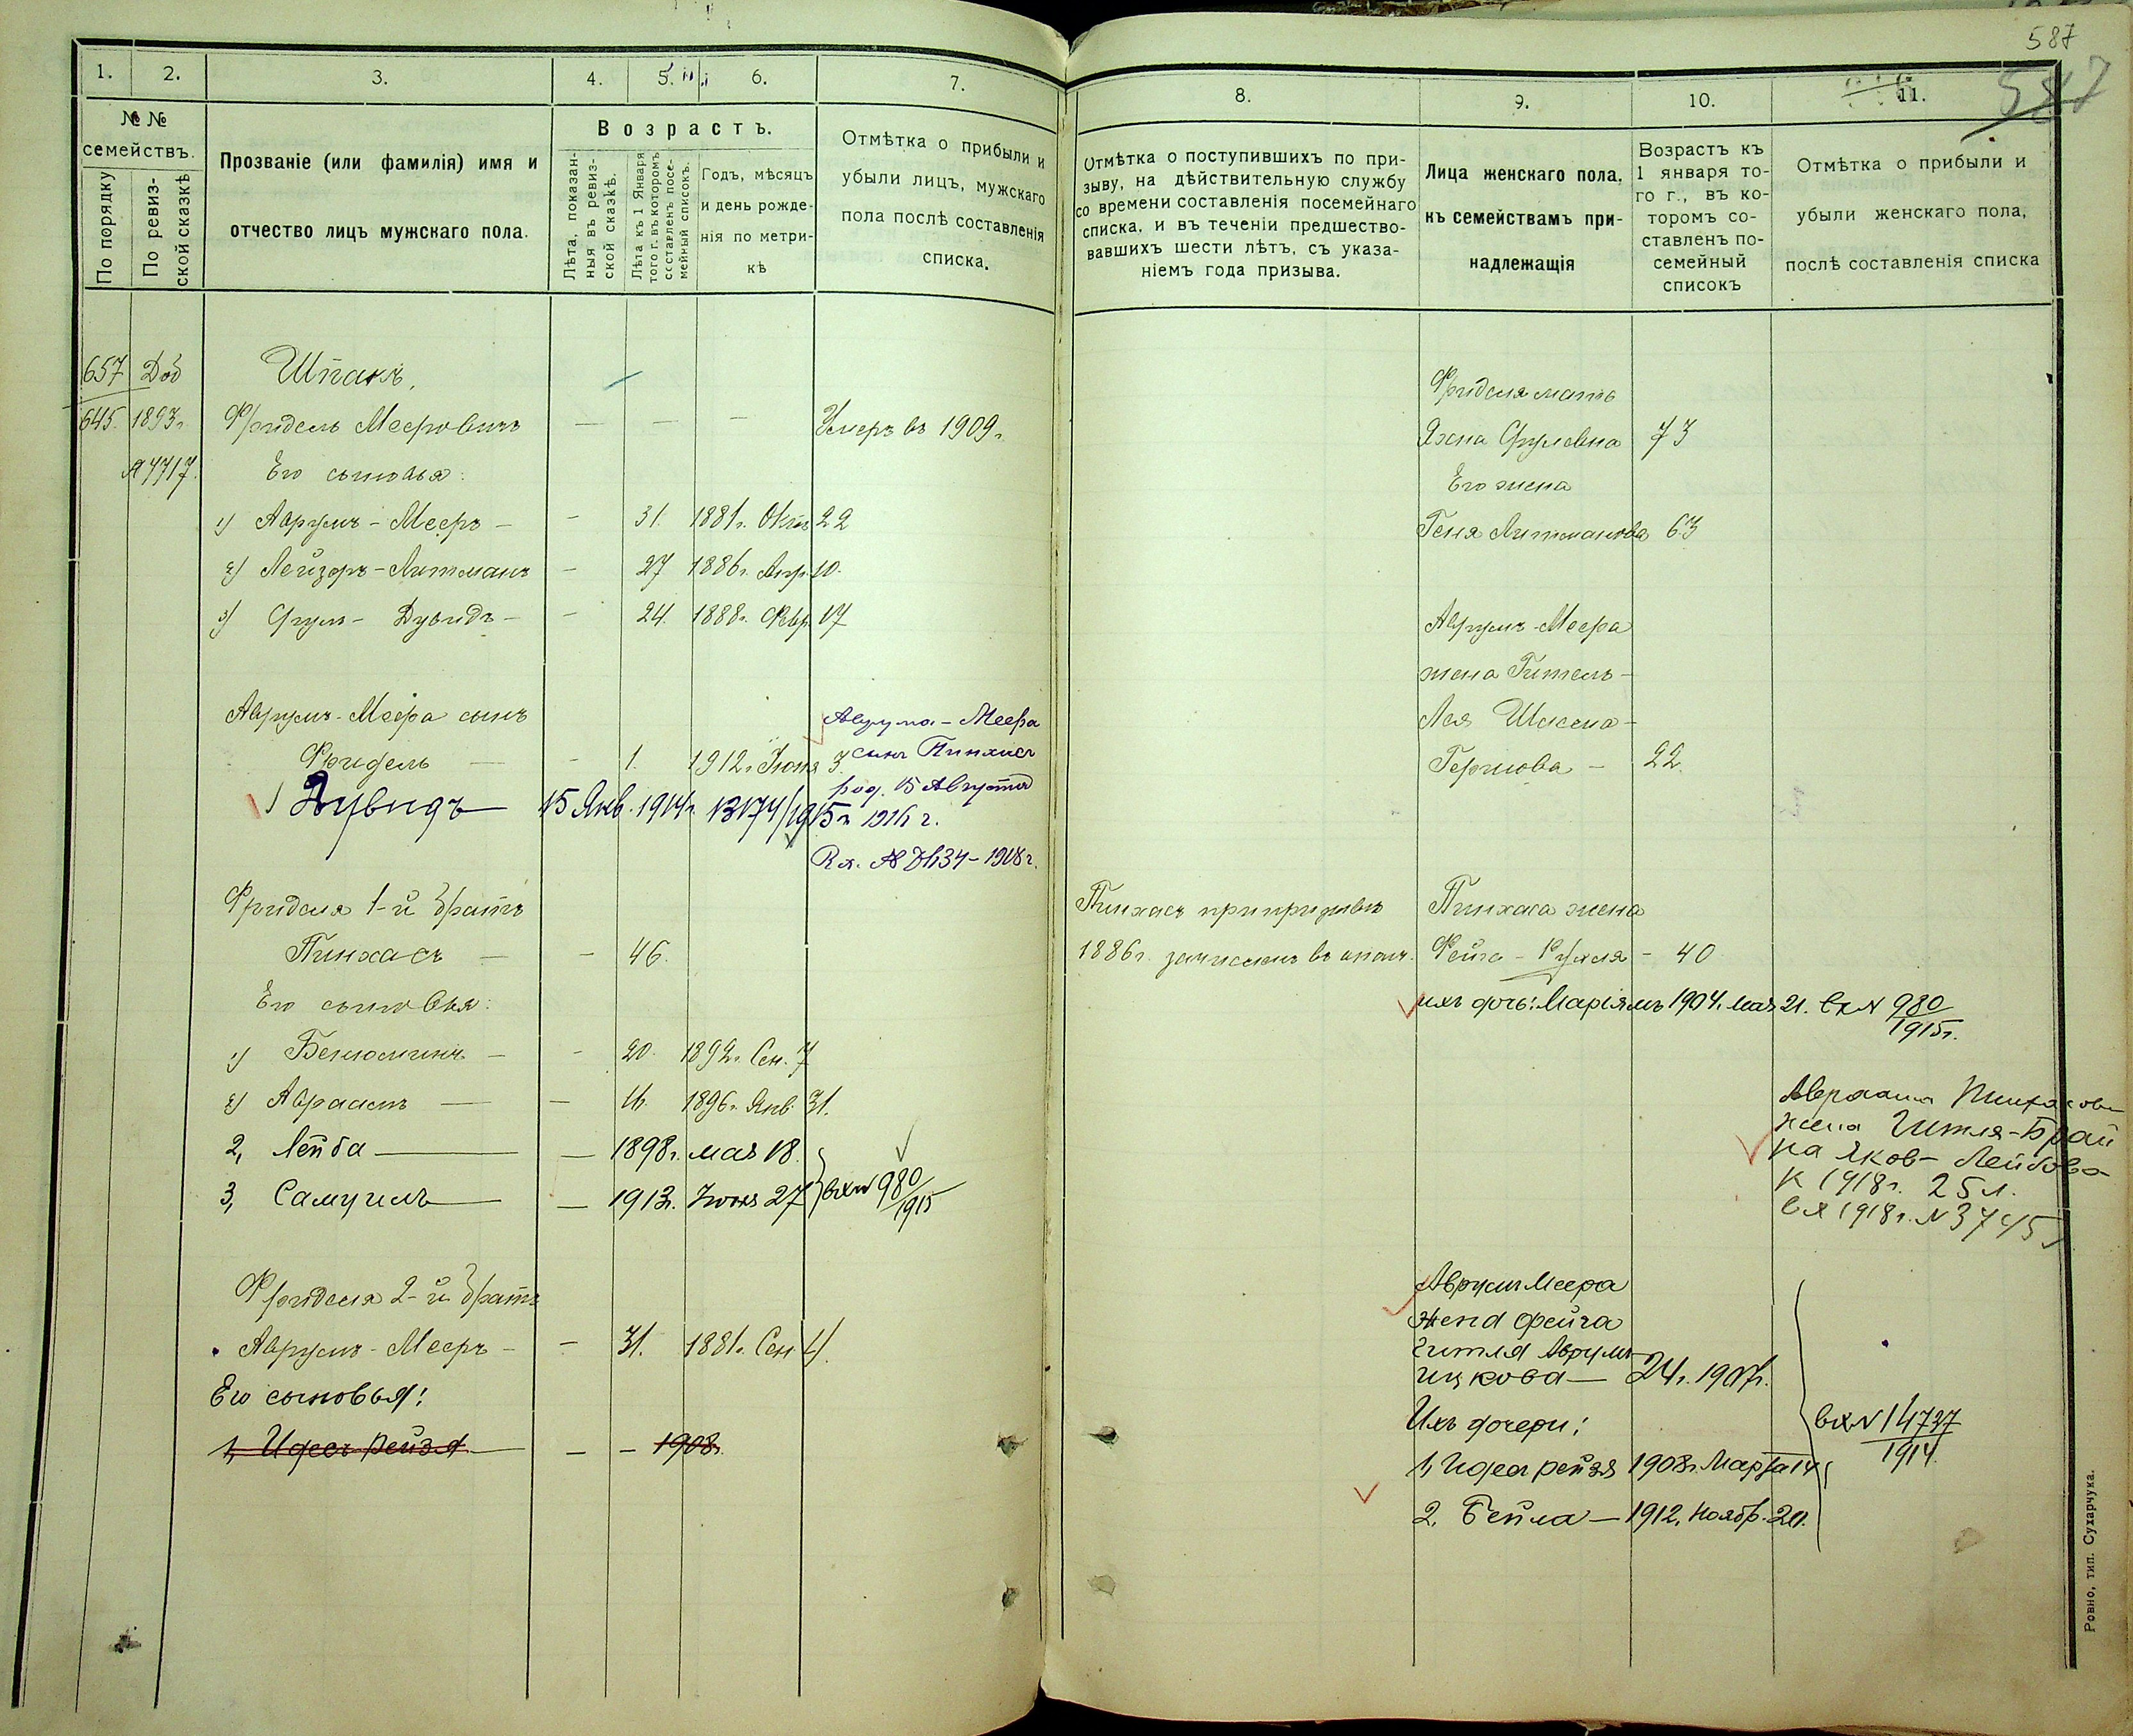 587
587
1.
2.
3.
4.
5.
6.
7.
№ №
семействъ.
По порядку
По ревиз-
ской сказкѣ
Прозваніе (или фамилія) имя и
отчество лицъ мужскаго пола.
Возрастъ.
Лѣта, показан-
ныя въ ревиз-
ской сказкѣ.
Лѣта къ 1 Января
того г. въ которомъ
составленъ посе-
мейный списокъ.
Годъ, мѣсяцъ
и день рожде-
нія по метри-
кѣ
Отмѣтка о прибыли и
убыли лицъ, мужскаго
пола послѣ составленія
списка.
657 Доб Шпакъ.
645. 1893г. Фридель Мееровичъ — — — Умеръ въ 1909г.
№ 7717. Его сыновья:
1) Аврумъ-Мееръ — — 31. 1881г. Окт. 22
2) Лейзоръ-Литманъ — 27 1886г. Апр. 10.
3) Сруль-Дувидъ — — 24. 1888г. Февр. 17
Аврумъ-Меера сынъ
Фридель — — 1. 1912г. Іюня 3.
Дувидъ 15 Янв. 1914г. 13174/1915г.
Аврума-Меера
сынъ Пинхасъ
род. 15 Августа
1916 г.
Вх. № 2634-1918г.
Фриделя 1-й братъ
Пинхасъ — — 46.
Его сыновья:
1) Беньюминъ — — 20. 1892г. Сен. 7
2) Авраамъ — — 16. 1896г. Янв. 31.
2, Лейба — — 1898г. мая 18.
3, Самуилъ — — 1913г. Іюня 27
вх№ 980/1915
Фриделя 2-й братъ
Аврумъ-Мееръ — — 31. 1881г. Сен. 4.
Его сыновья:
1, Идесъ Рейзя — — — 1908.
8.
9.
10.
11.
Отмѣтка о поступившихъ по при-
зыву, на дѣйствительную службу
со времени составленія посемейнаго
списка, и въ теченіи предшество-
вавшихъ шести лѣтъ, съ указа-
ніемъ года призыва.
Лица женскаго пола,
къ семействамъ при-
надлежащія
Возрастъ къ
1 января то-
го г., въ ко-
торомъ со-
ставленъ по-
семейный
списокъ
Отмѣтка о прибыли и
убыли женскаго пола,
послѣ составленія списка
Фриделя мать
Яхна Срулевна 73
Его жена
Геня Литманова 63
Аврумъ-Меера
жена Гитель-
Лея
Гершова — 22.
Пинхасъ при призывѣ
1886г. зачисленъ въ ополч.
Пинхаса жена
Фейга-Рухля — 40
ихъ дочь: Маріямъ 1904г. мая 21. Вх№ 980/1915г.
Авраама Пинхасов
жена Гитля-Брай
на Яков-Лейбова
к 1918г. 25 л.
Вх 1918г. № 3745
Аврум Меера
жена Фейга
Гитля Аврумъ
Ицкова — 24г. 1907г.
Ихъ дочери:
1, Идеса Рейзя 1908г. Марта 14
2. Бейла — 1912. Ноябр. 20.
вх№ 14737/1914.
Ровно, тип. Сухарчука.